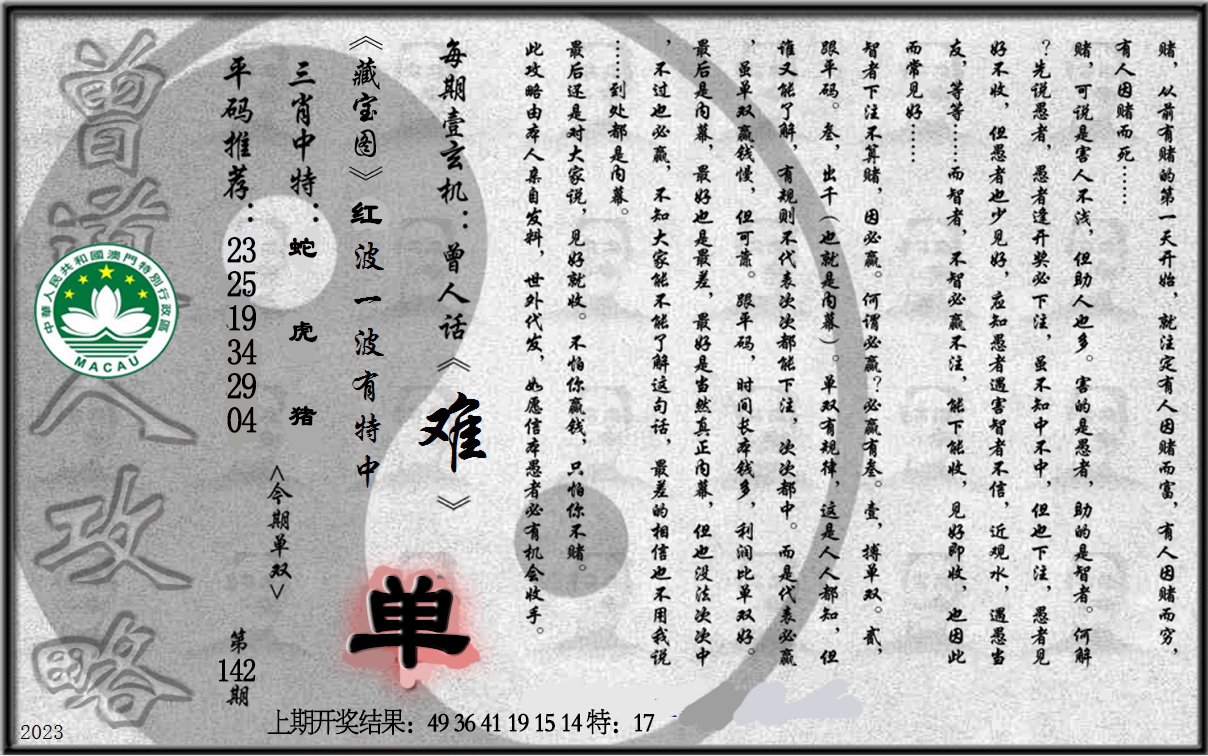 赌，从前有赌的第一天开始，就注定有人因赌而富，有人因赌而穷，
有人因赌而死……
赌，可说是害人不浅，但助人也多。害的是愚者，助的是智者。何解
？先说愚者，愚者逢开奖必下注，虽不知中不中，但也下注，愚者见
好不收，但愚者也少见好，应知愚者遇害智者不信，近观水，遇愚当
友，等等……而智者，不智必赢不注，能下能收，见好即收，也因此
而常见好……
智者下注不算赌，因必赢。何谓必赢？必赢有叁。壹，搏单双。贰，
跟平码。叁，出千（也就是内幕）。单双有规律，这是人人都知，但
谁又能了解，有规则不代表次次都能下注，次次都中。而是代表必赢
，虽单双赢钱慢，但可靠。跟平码，时间长本钱多，利润比单双好。
最后是内幕，最好也是最差，最好是当然真正内幕，但也没法次次中
，不过也必赢，不知大家能不能了解这句话，最差的相信也不用我说
……到处都是内幕。
最后还是对大家说，见好就收。不怕你赢钱，只怕你不赌。
此攻略由本人亲自发料，世外代发，如愿信本愚者必有机会收手。
每期壹玄机：曾人话《难》
《藏宝图》红波一波有特中
单
三肖中特：蛇 虎 猪
<今期单双>
平码推荐：23 25 19 34 29 04
第142期
曾道人攻略
中華人民共和國澳門特別行政區
MACAU
上期开奖结果：49 36 41 19 15 14 特：17
2023